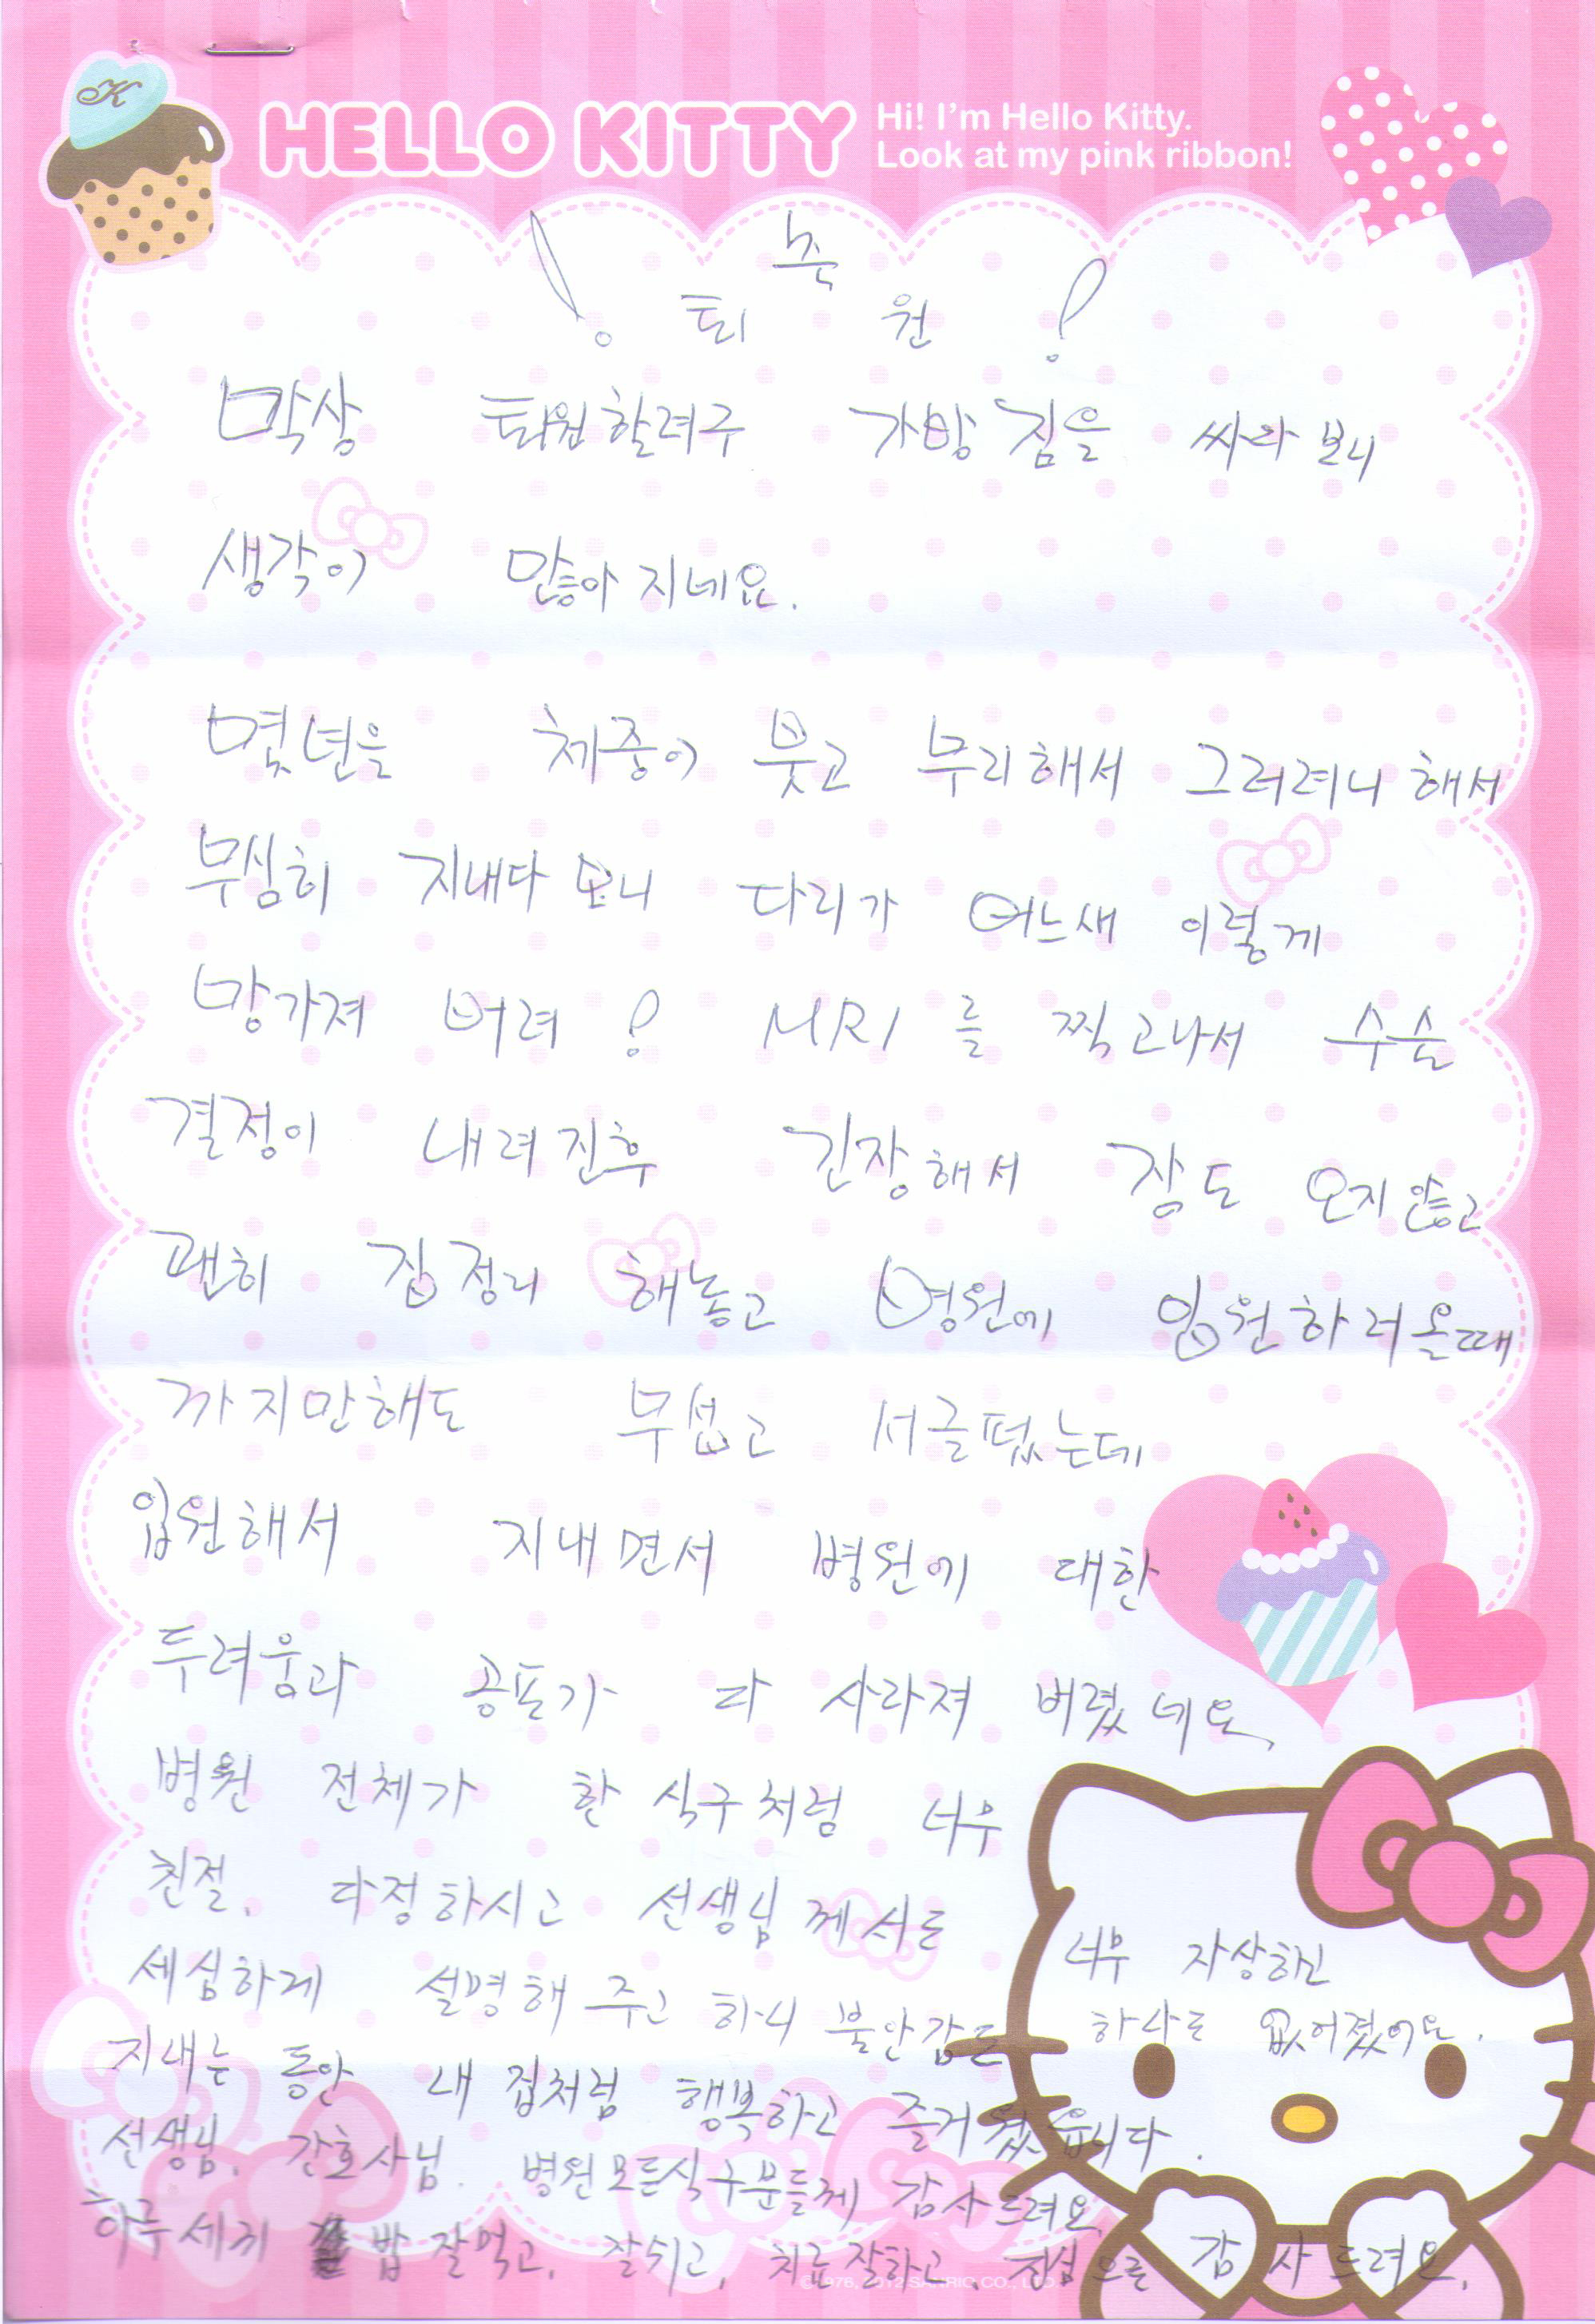 K
HELLO KITTY
Hi! I'm Hello Kitty.
Look at my pink ribbon!
! 퇴 원 !
막상 퇴원할려구 가방 짐을 싸라 보니
생각이 많아 지네요.
몇년을 체중이 붓고 무리해서 그러려니 해서
무심히 지내다 보니 다리가 어느새 이렇게
망가져 버려! MRI 를 찍고나서 수술
결정이 내려진후 긴장해서 잠도 오지않고
괜히 집정리 해놓고 병원에 입원하러올때
까지만해도 무섭고 서글펐는데
입원해서 지내면서 병원에 대한
두려움과 공포가 다 사라져 버렸네요,
병원 전체가 한 식구처럼 너무
친절, 다정하시고 선생님께서도 너무 자상하고
세심하게 설명해 주고 하니 불안감도 하나도 없어졌어요.
지내는 동안 내 집처럼 행복하고 즐거웠읍니다.
선생님. 간호사님. 병원모든식구분들께 감사드려요,
하루세끼 밥 잘먹고, 잘쉬고, 치료잘하고, 감사드려요,